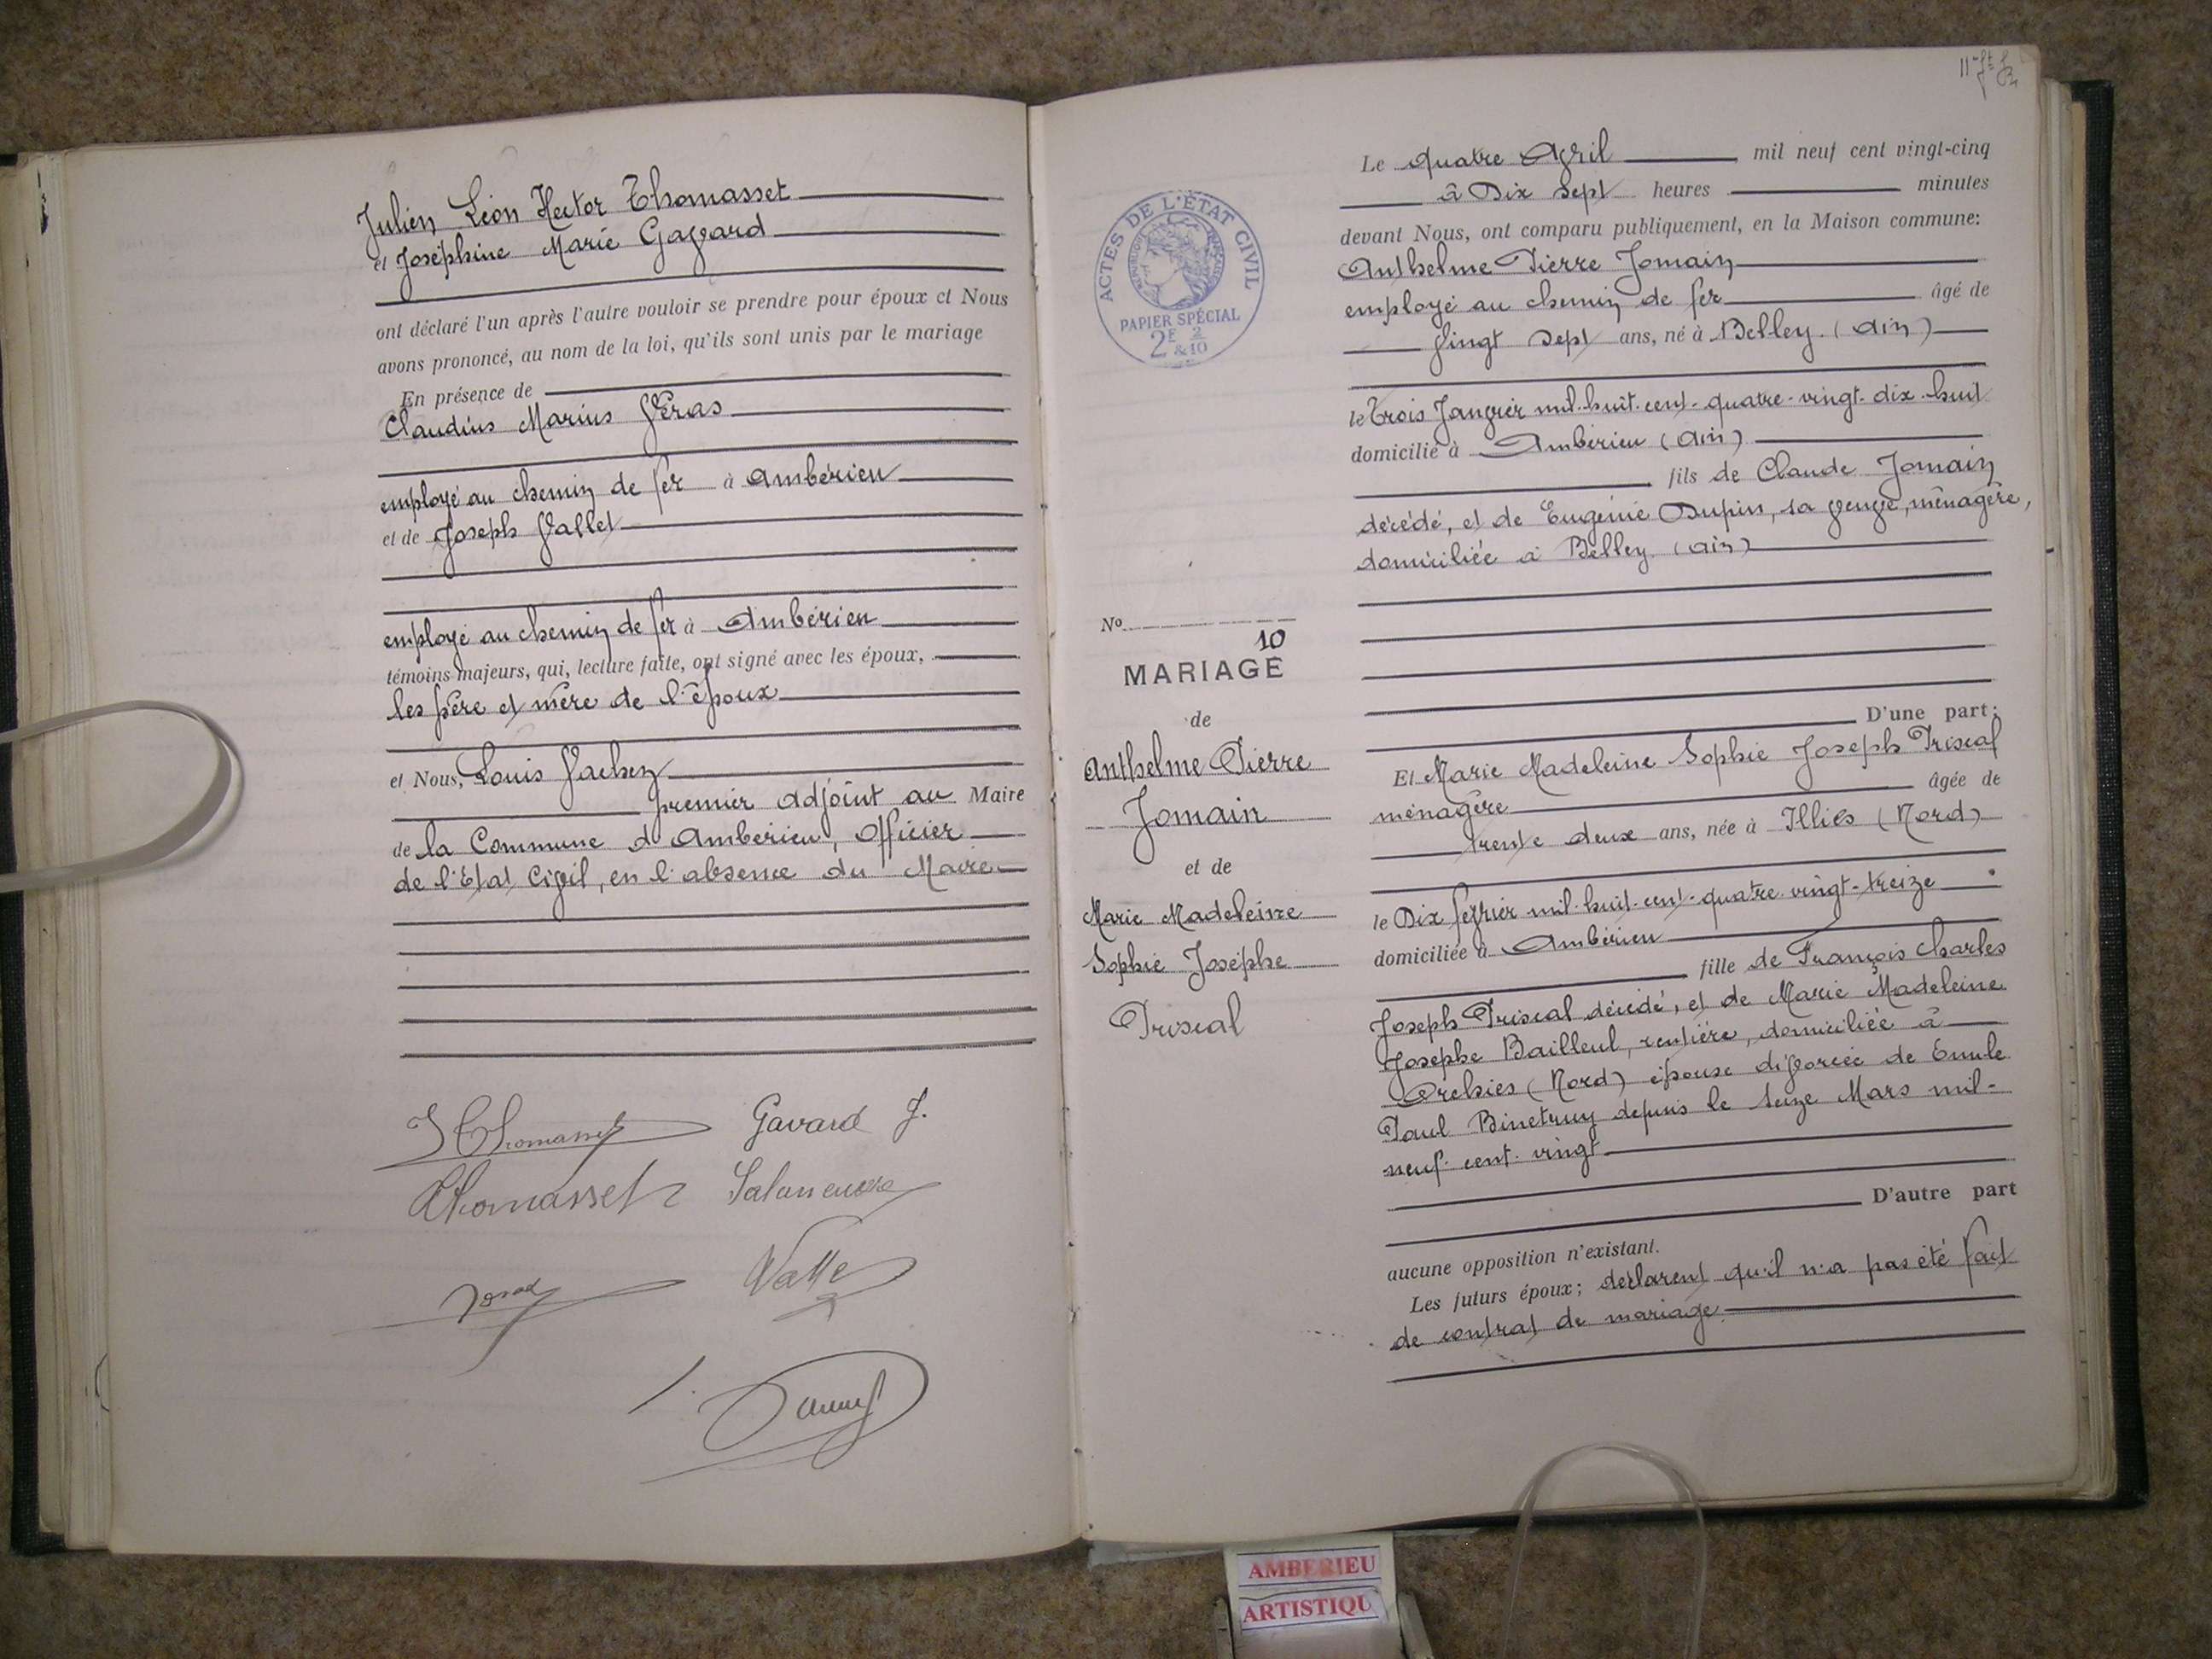 Julien Léon Hector Thomasset
et Joséphine Marie Gavard
ont déclaré l'un après l'autre vouloir se prendre pour époux et Nous
avons prononcé, au nom de la loi, qu'ils sont unis par le mariage
En présence de
Claudius Marius Véras
employé au chemin de fer à Ambérieu
et de Joseph Vallet
employé au chemin de fer à Ambérieu
témoins majeurs, qui, lecture faite, ont signé avec les époux,
les père et mère de l'époux
et Nous, Louis Vachez
premier adjoint au Maire
de la Commune d'Ambérieu, Officier
de l'Etat Civil, en l'absence du Maire
J Thomasset Gavard J.
Thomasset
ACTES DE L'ÉTAT CIVIL
PAPIER SPÉCIAL
2E 2
&10
No
10
MARIAGE
de
Anthelme Pierre
Jomain
et de
Marie Madeleine
Sophie Josephe
Priscal
Le quatre Avril mil neuf cent vingt-cinq
à Dix sept heures minutes
devant Nous, ont comparu publiquement, en la Maison commune:
Anthelme Pierre Jomain
employé au chemin de fer âgé de
vingt sept ans, né à Belley (Ain)
le trois Janvier mil-huit-cent-quatre-vingt-dix-huit
domicilié à Ambérieu (Ain)
fils de Claude Jomain
décédé, et de Eugénie Dupin, sa veuve, ménagère,
domiciliée à Belley (Ain)
D'une part;
Et Marie Madeleine Sophie Joseph Priscal
ménagère âgée de
trente deux ans, née à Illies (Nord)
le Dix février mil-huit-cent-quatre-vingt-treize
domiciliée à Ambérieu
fille de François Charles
Joseph Priscal décédé, et de Marie Madeleine
Josephe Bailleul, rentière, domiciliée à
Orchies (Nord) épouse divorcée de Emile
Paul Binetruy depuis le seize Mars mil-
neuf-cent-vingt
D'autre part
aucune opposition n'existant.
Les futurs époux; déclarent qu'il n'a pas été fait
de contrat de mariage
AMBERIEU
ARTISTIQU